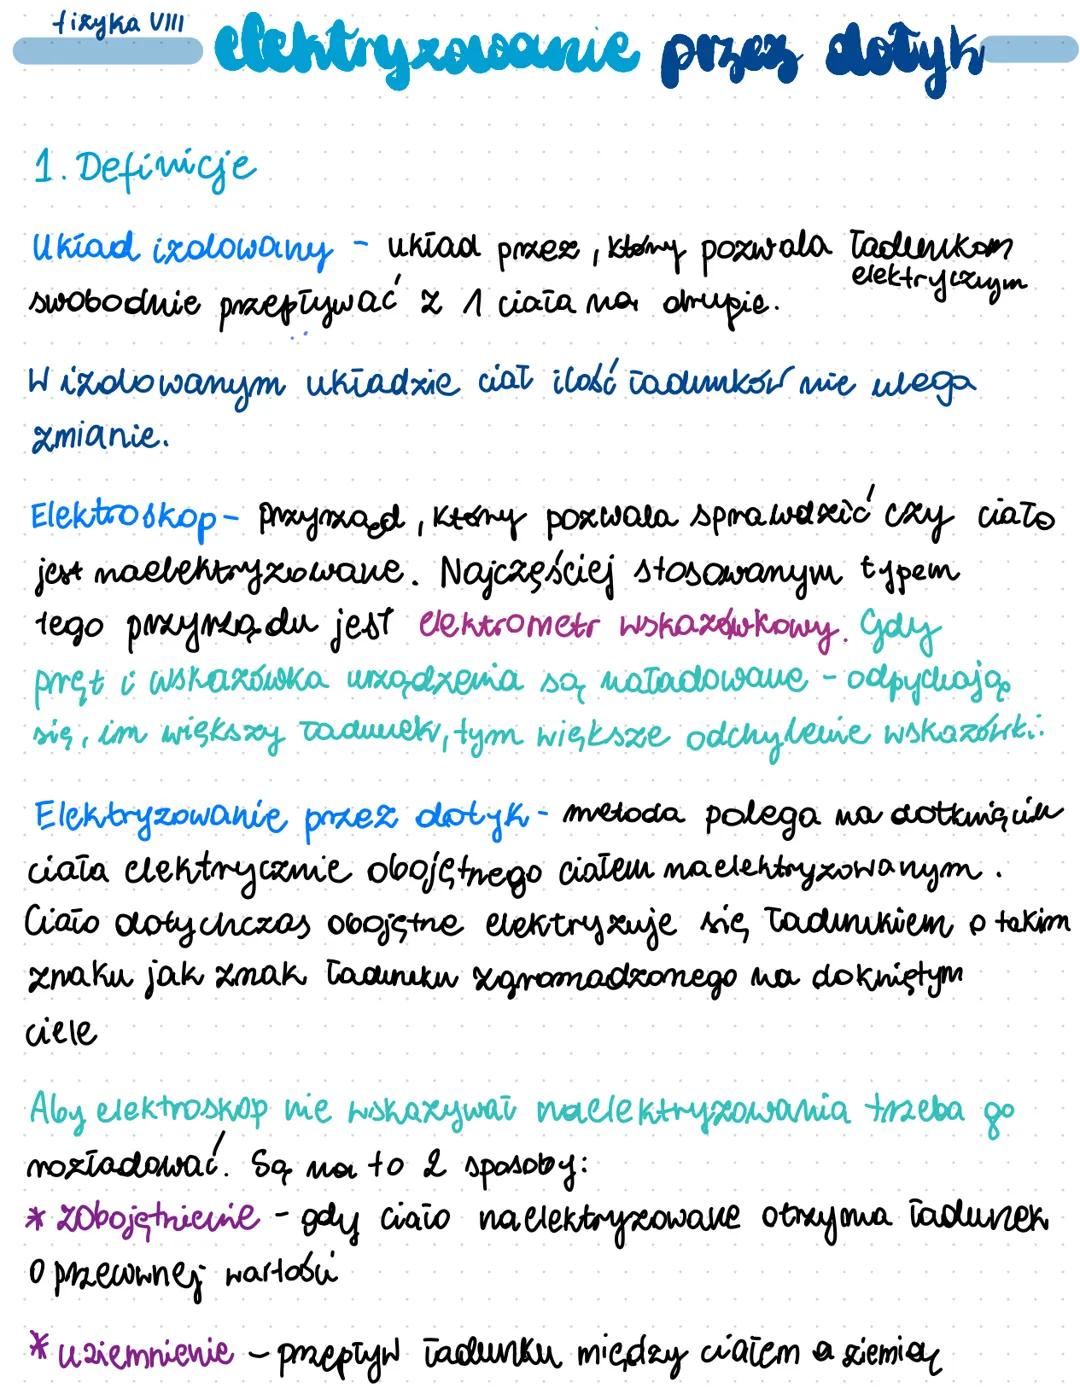 fizyka VIII
elektryzowanie przez dotyk
1. Definicje
Układ izolowany - układ przez, który pozwala ładunkom
elektrycznym
swobodnie przepływać z 1 ciała na drugie.
W izolowanym układzie ciał ilość ładunków nie ulega
zmianie.
Elektroskop - przyrząd, który pozwala sprawdzić czy ciało
jest naelektryzowane. Najczęściej stosowanym typem
tego przyrządu jest elektrometr wskazówkowy. Gdy
pręt i wskazówka urządzenia są naładowane - odpychają
się, im większy ładunek, tym większe odchylenie wskazówki.
Elektryzowanie przez dotyk - metoda polega na dotknięciu
ciała elektrycznie obojętnego ciałem naelektryzowanym.
Ciało dotychczas obojętne elektryzuje się ładunkiem o takim
znaku jak znak ładunku zgromadzonego na dokniętym
ciele
Aby elektroskop nie wskazywał naelektryzowania trzeba go
rozładować. Są na to 2 sposoby:
* zobojętnienie - gdy ciało naelektryzowane otrzyma ładunek
o przeciwnej wartości
* uziemnienie - przepływ ładunku między ciałem a ziemią